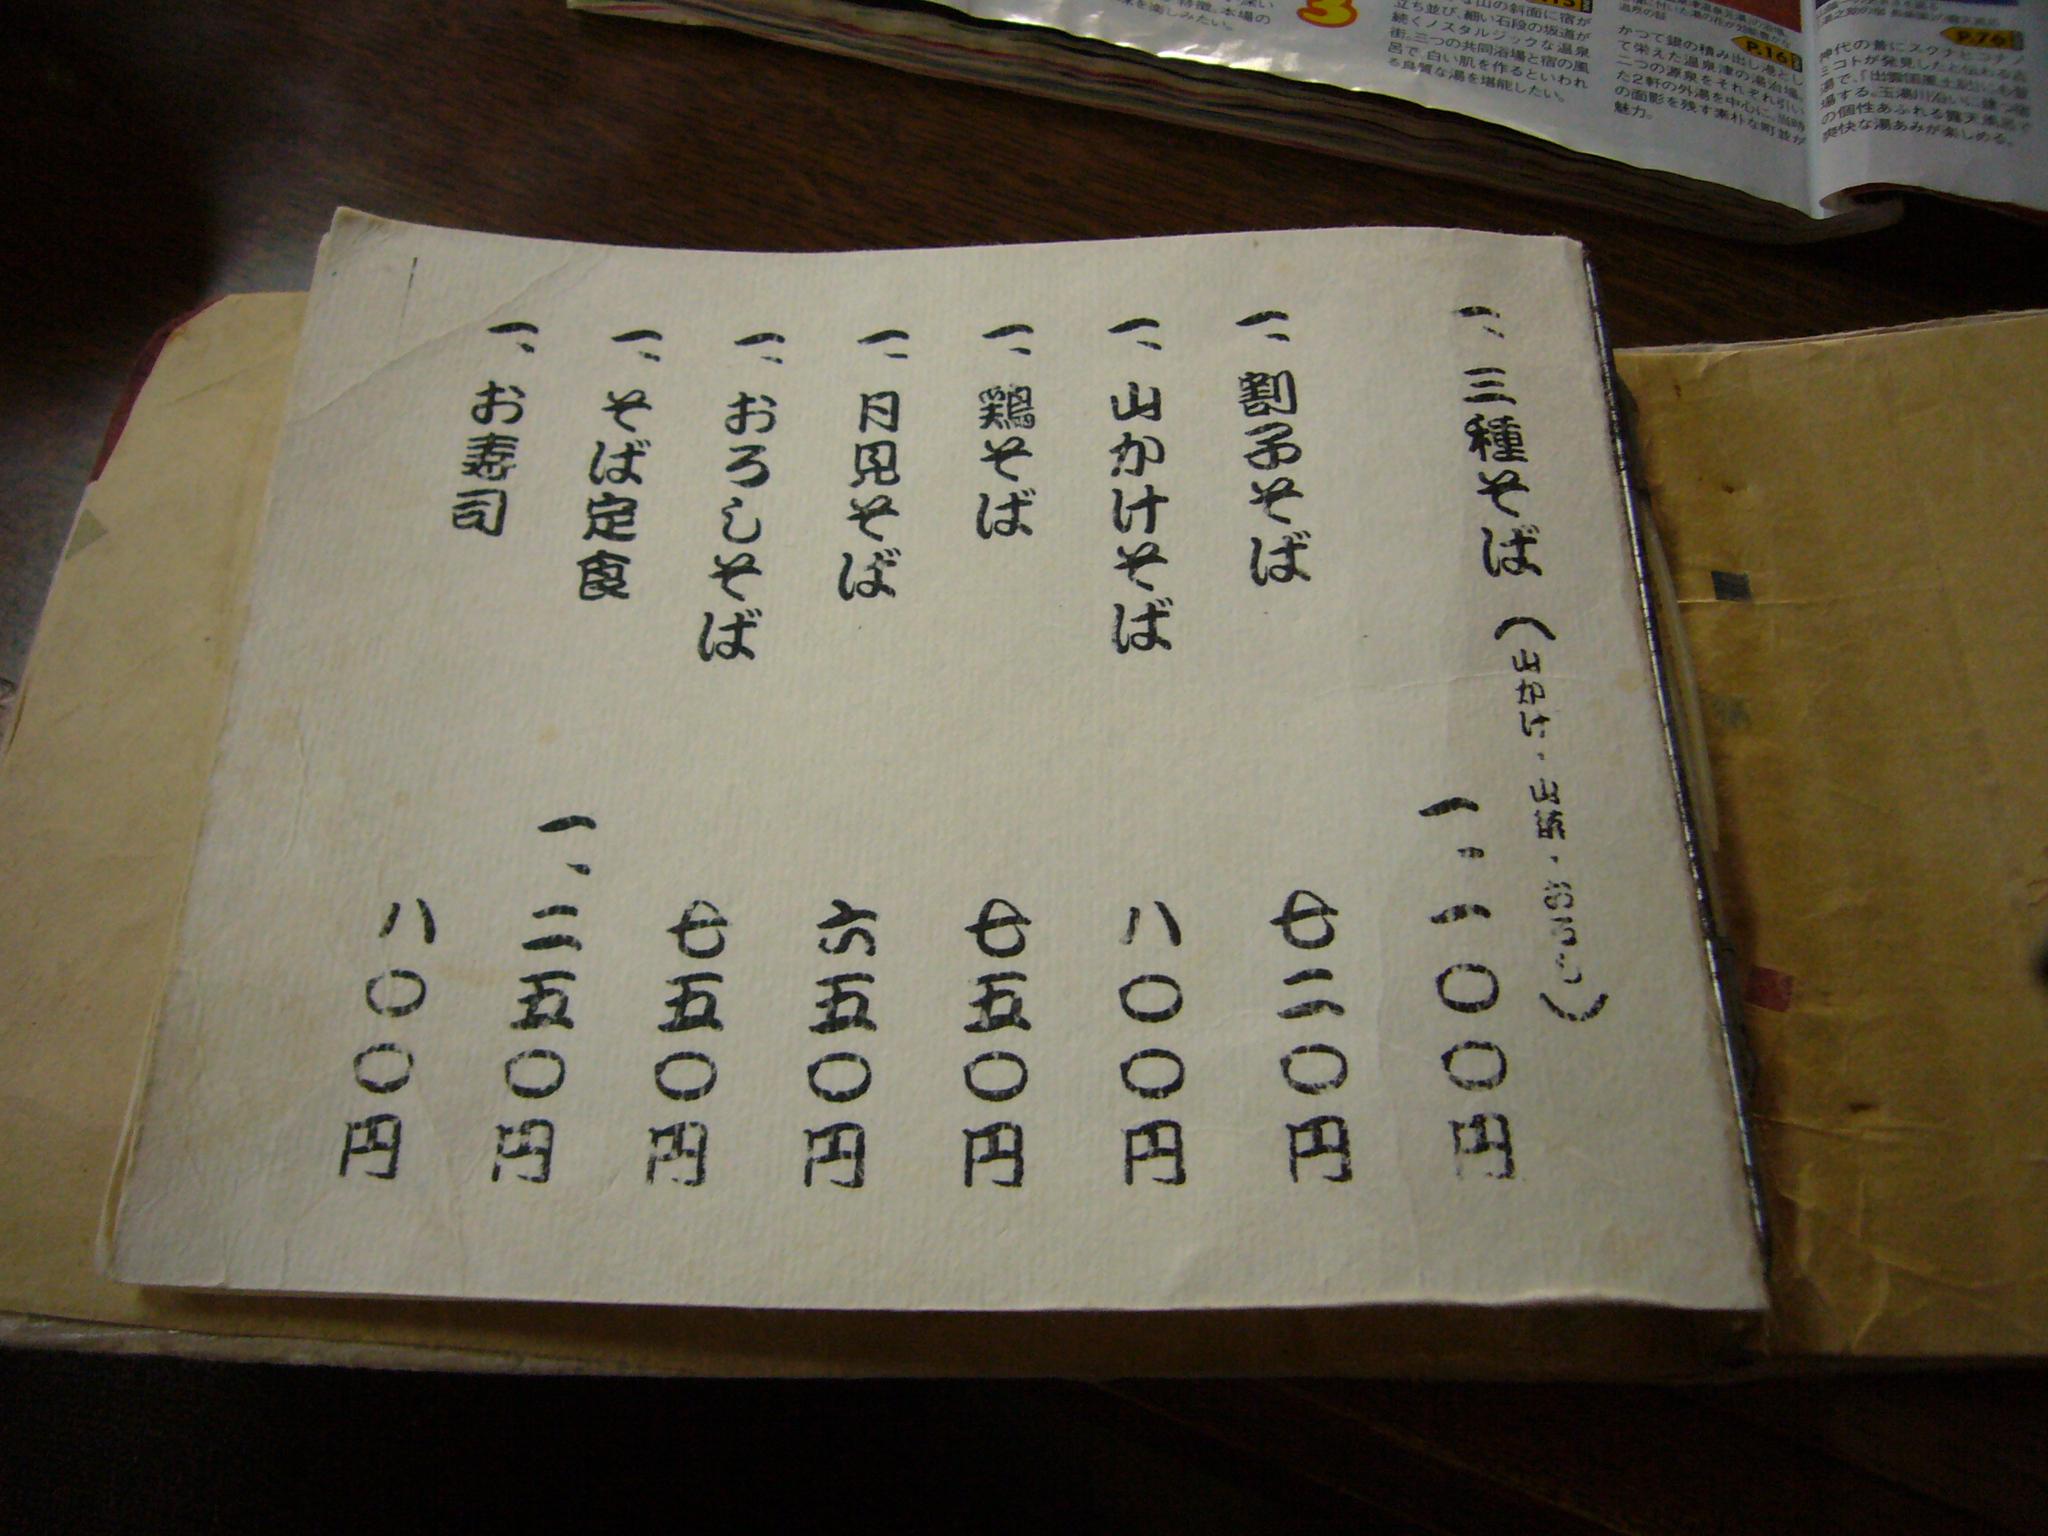 一、三種そば（山かけ・山菜・おろし）
一、一〇〇円
一、割子そば　七二〇円
一、山かけそば　八〇〇円
一、鶏そば　七五〇円
一、月見そば　六五〇円
一、おろしそば　七五〇円
一、そば定食　一、二五〇円
一、お寿司　八〇〇円
3
山の斜面に宿が
立ち並び、細い石段の坂道が
続くノスタルジックな温泉
街。三つの共同浴場と宿の風
呂で、白い肌を作るといわれ
る良質な湯を堪能したい。
P.16
かつて銀の積み出し港とし
て栄えた温泉津の湯治場。
二つの源泉をそれぞれ引い
た2軒の外湯を中心に、当時
の面影を残す素朴な町並が
魅力。
P.76
神代の昔にスクナヒコナノ
ミコトが発見したと伝わる古
湯で、「出雲国風土記」にも登
場する。玉湯川沿いに建つ宿
の個性あふれる露天風呂で
爽快な湯あみが楽しめる。